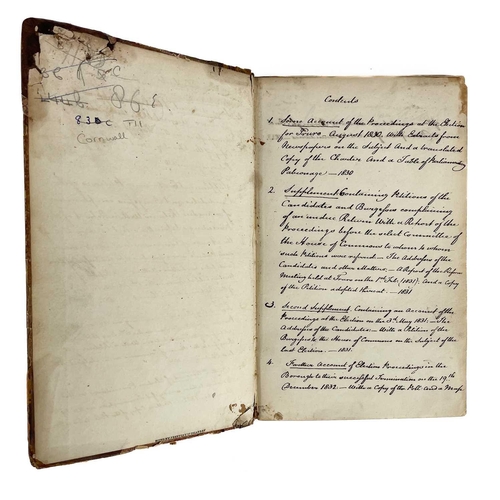 86
830C FH
Cornwall
Contents
1. Some Account of the Proceedings at the Election
for Truro - August 1830. With Extracts from
Newspapers on the Subject And a translated
Copy of the Charter And a Table of Parliamentary
Patronage. — 1830
2. Supplement Containing Petitions of the
Candidates and Burgesses complaining
of an undue Return With a Report of the
Proceedings before the select Committee of
the House of Commons to whom to whom
such Petitions were referred — The Addresses of the
Candidates and other Matters; — A Report of the Reform
Meeting held at Truro on the 1st Feb. (1831) And a Copy
of the Petition adopted thereat. — 1831
3. Second Supplement. Containing an Account of the
Proceedings at the Election on the 3rd May 1831. — The
Addresses of the Candidates. — With a Petition of the
Burgesses to the House of Commons on the Subject of the
last Election. — 1831.
4. Further Account of Election Proceedings in the
Borough to their successful Termination on the 19th
December 1832. — With a Copy of the Poll And a Map.